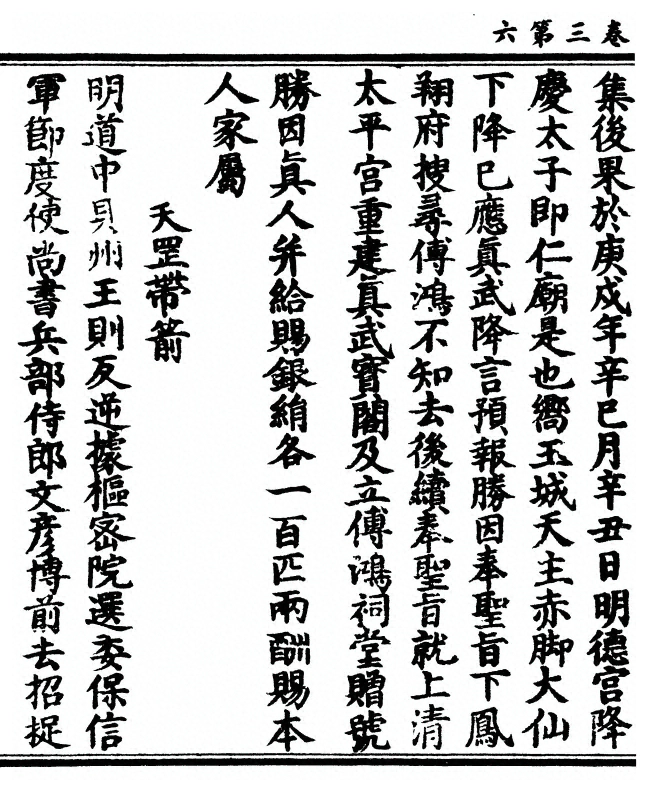 卷三第六
集後果於庚戍年辛巳月辛丑日明德宮降
慶太子即仁廟是也嚮玉城天主赤脚大仙
下降已應眞武降言預報勝因奉聖旨下鳳
翔府搜尋傅鴻不知去後續奉聖旨就上清
太平宮重建眞武寶閣及立傅鴻祠堂贈號
勝因眞人并給賜銀絹各一百匹兩酬賜本
人家屬
天罡帶箭
明道中貝州王則反逆據樞密院選委保信
軍節度使尚書兵部侍郎文彦博前去招捉